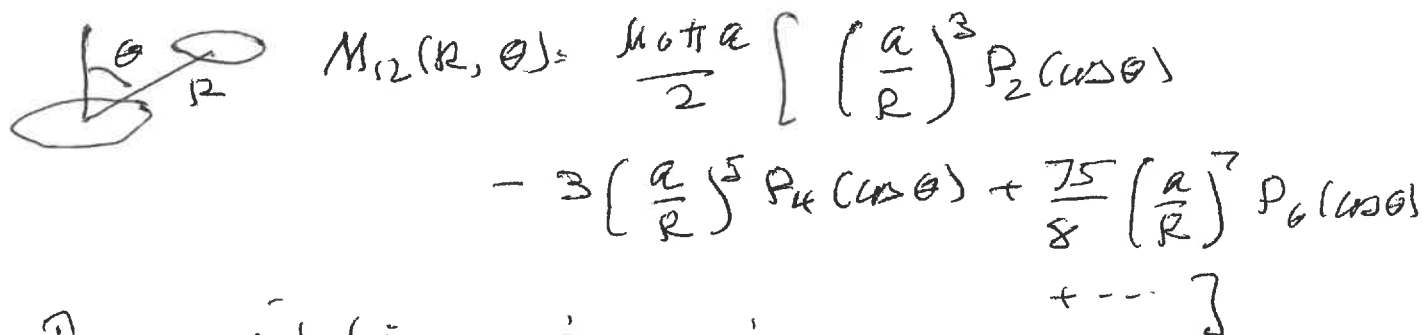 θ
R
M₁₂(R, θ) = μ₀πa/2 [ (a/R)³ P₂(cosθ)
- 3 (a/R)⁵ P₄(cosθ) + 75/8 (a/R)⁷ P₆(cosθ)
+ --- ]